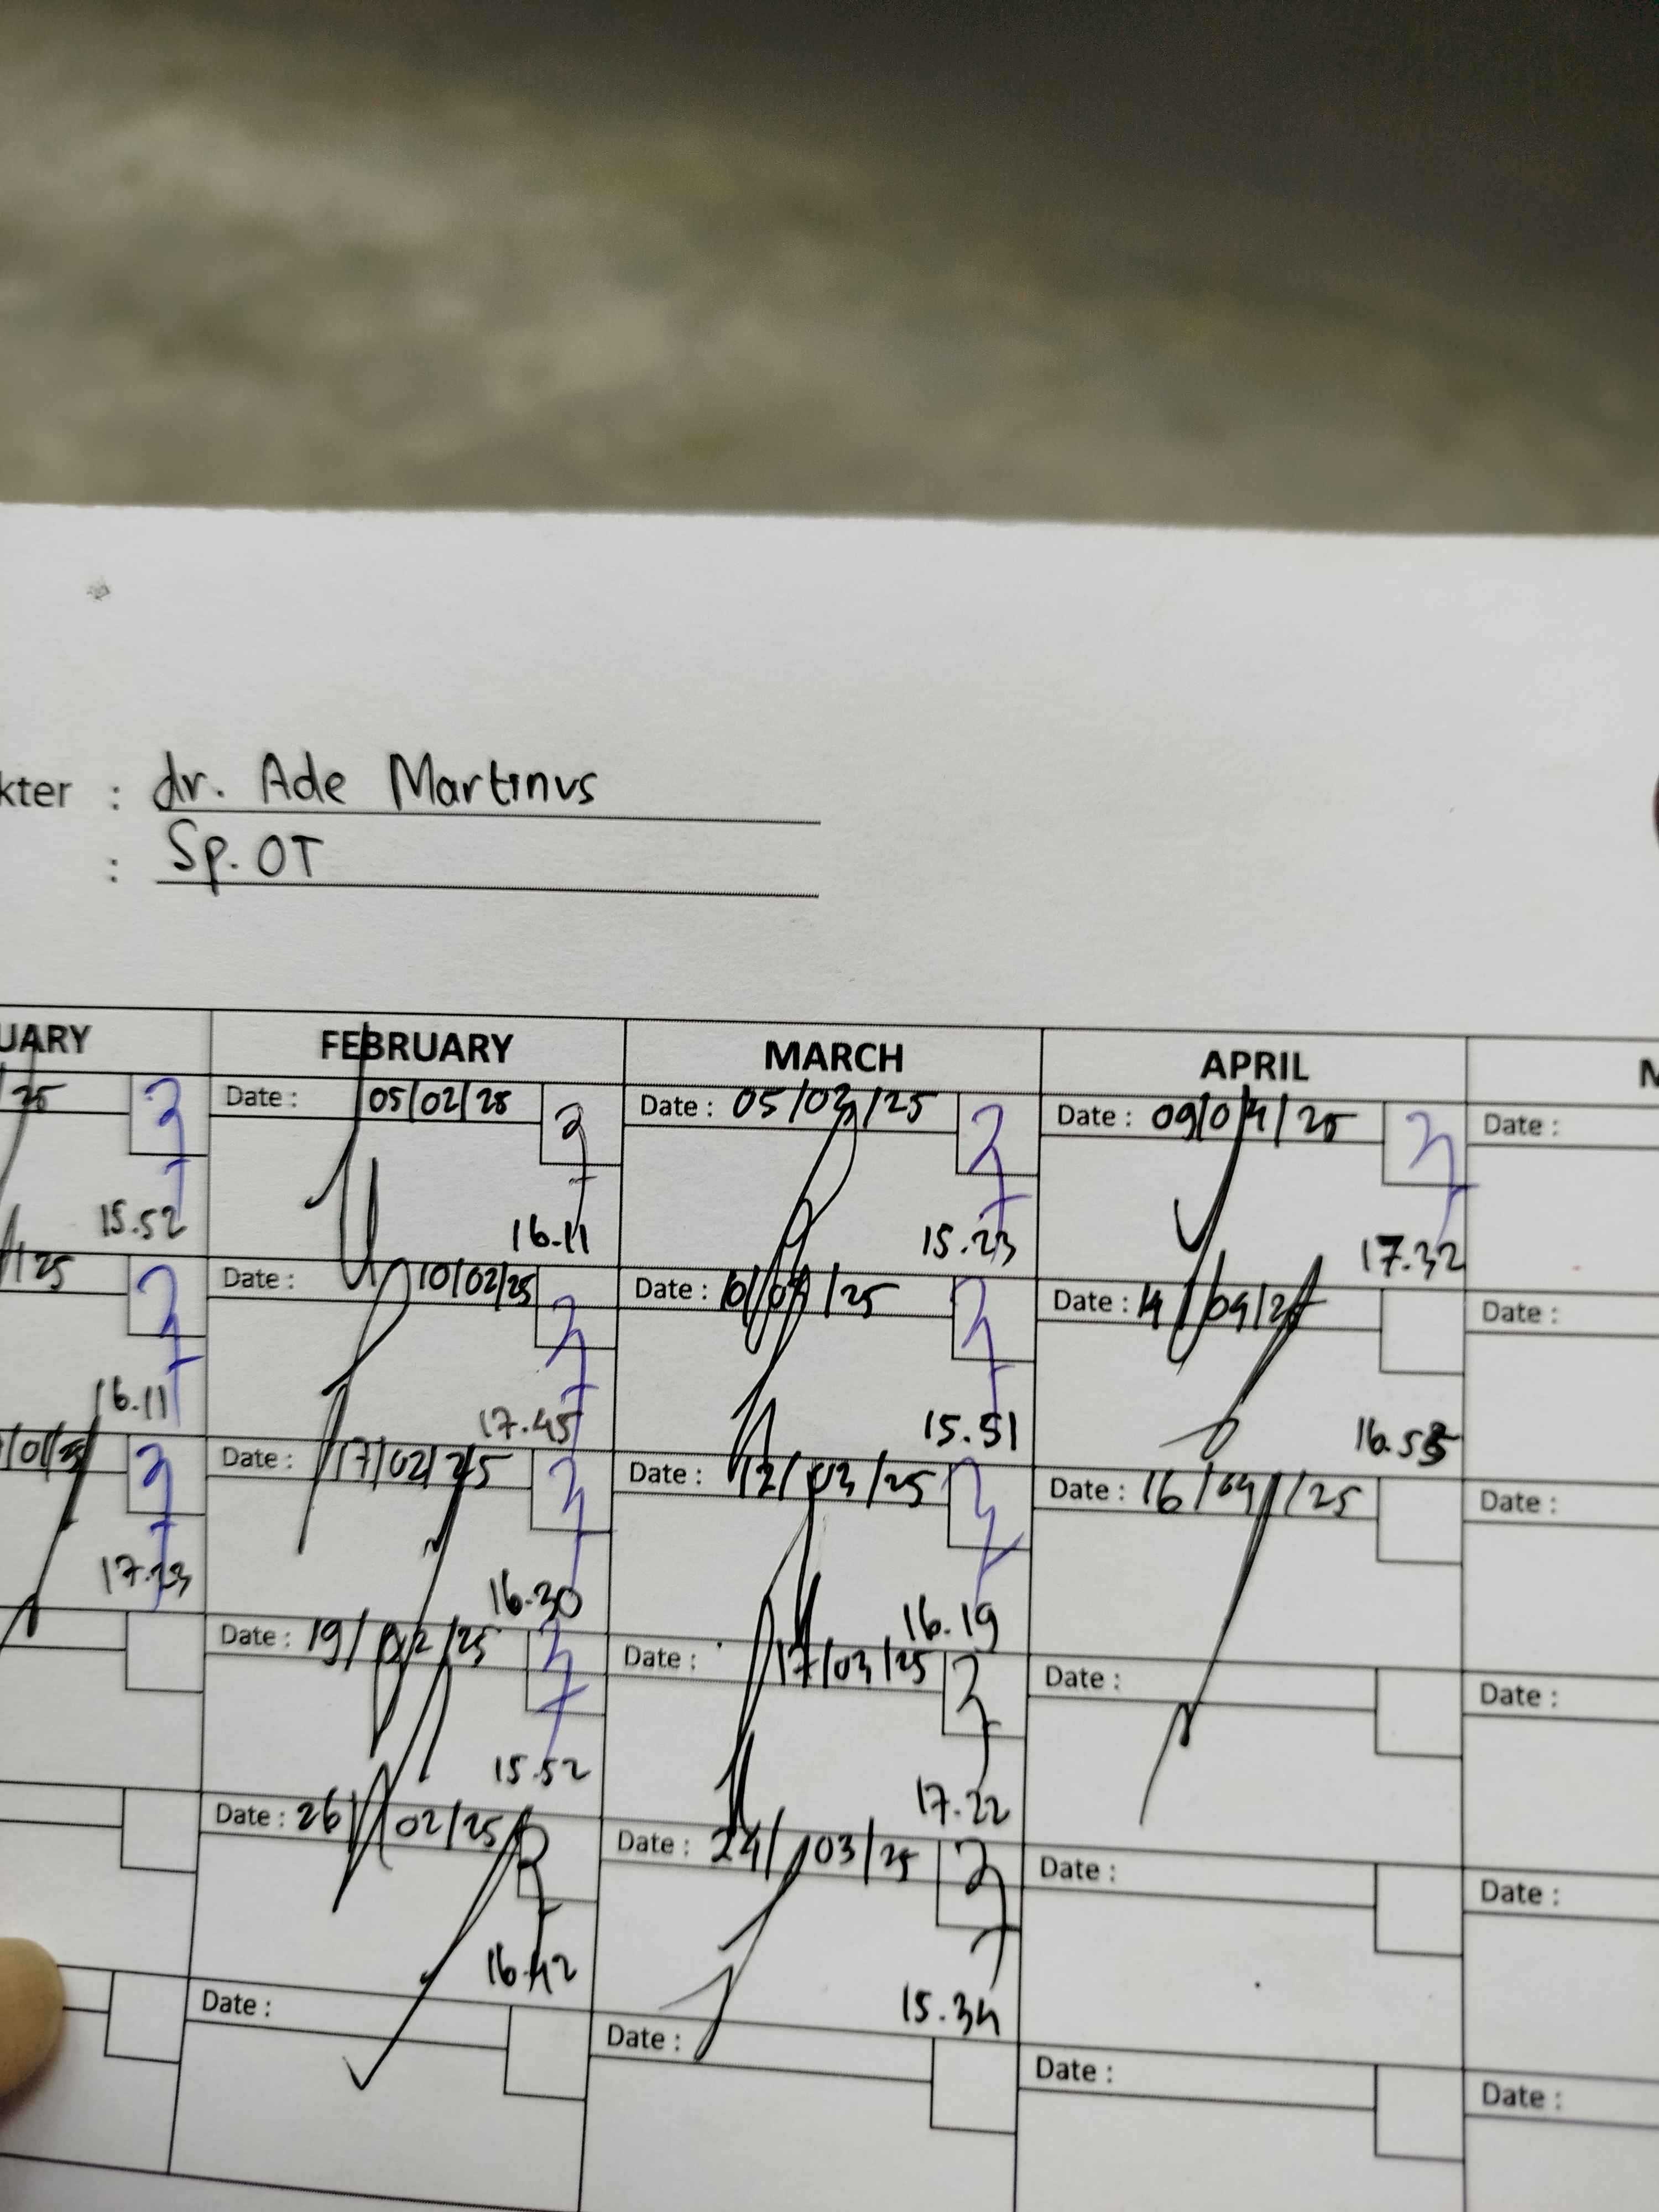 kter : dr. Ade Martinus
: Sp. OT
UARY FEBRUARY MARCH APRIL
25 Date : 05/02/25 Date : 05/03/25 Date : 09/04/25 Date :
15.52 16.11 15.23 17.32
25 Date : 10/02/25 Date : 10/03/25 Date : 14/04/25 Date :
16.11 17.45 15.51 16.55
Date : 17/02/25 Date : 12/03/25 Date : 16/04/25 Date :
17.23 16.30 16.19
Date : 19/02/25 Date : 17/03/25 Date : Date :
15.52 17.22
Date : 26/02/25 Date : 24/03/25 Date : Date :
16.42 15.34
Date : Date : Date : Date :